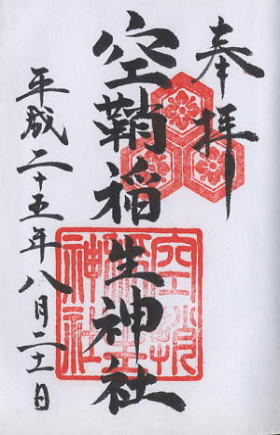 奉拝
空鞘稲生神社
平成二十五年八月二十一日
空鞘稲生神社